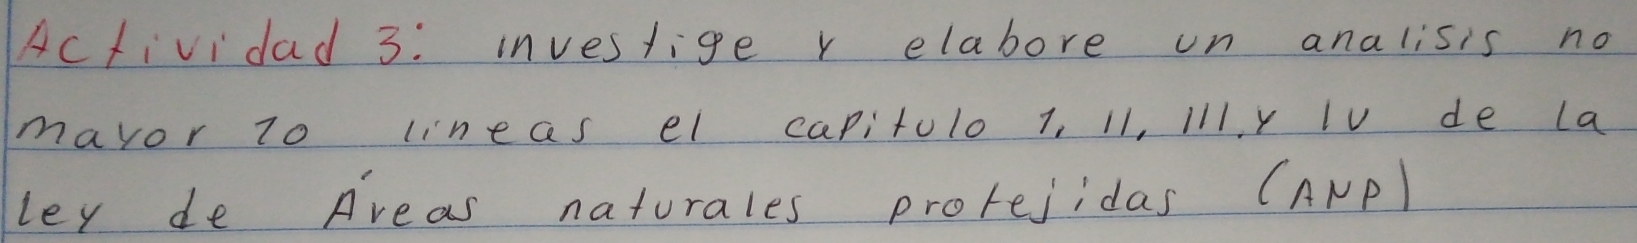 Actividad 3: investige y elabore un analisis no
mayor 10 lineas el capitulo 1, 11, 111. y 1v de la
ley de Áreas naturales protejidas (ANP)